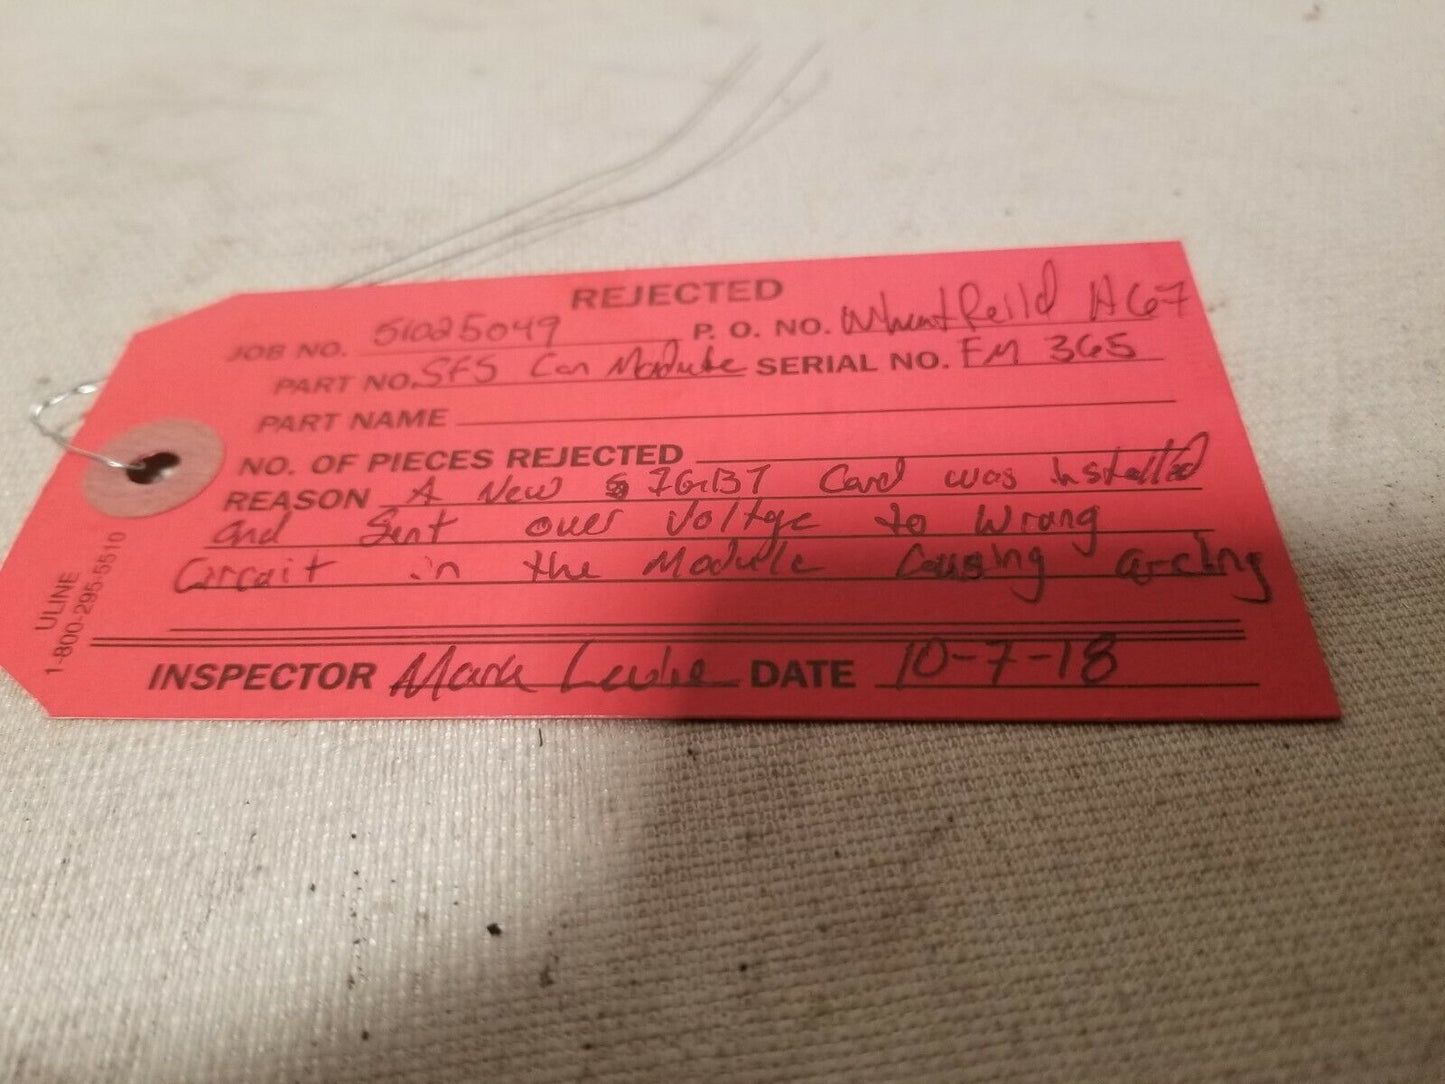 REJECTED
JOB NO. 51025049 P. O. NO. Wheatfeild A67
PART NO. SFS Con Module SERIAL NO. FM 365
PART NAME
NO. OF PIECES REJECTED
REASON A New IGBT Card was Installed
and Sent over Voltge to Wrong
Circuit in the Module Causing arcing
INSPECTOR Mark Leslie DATE 10-7-18
ULINE
1-800-295-5510